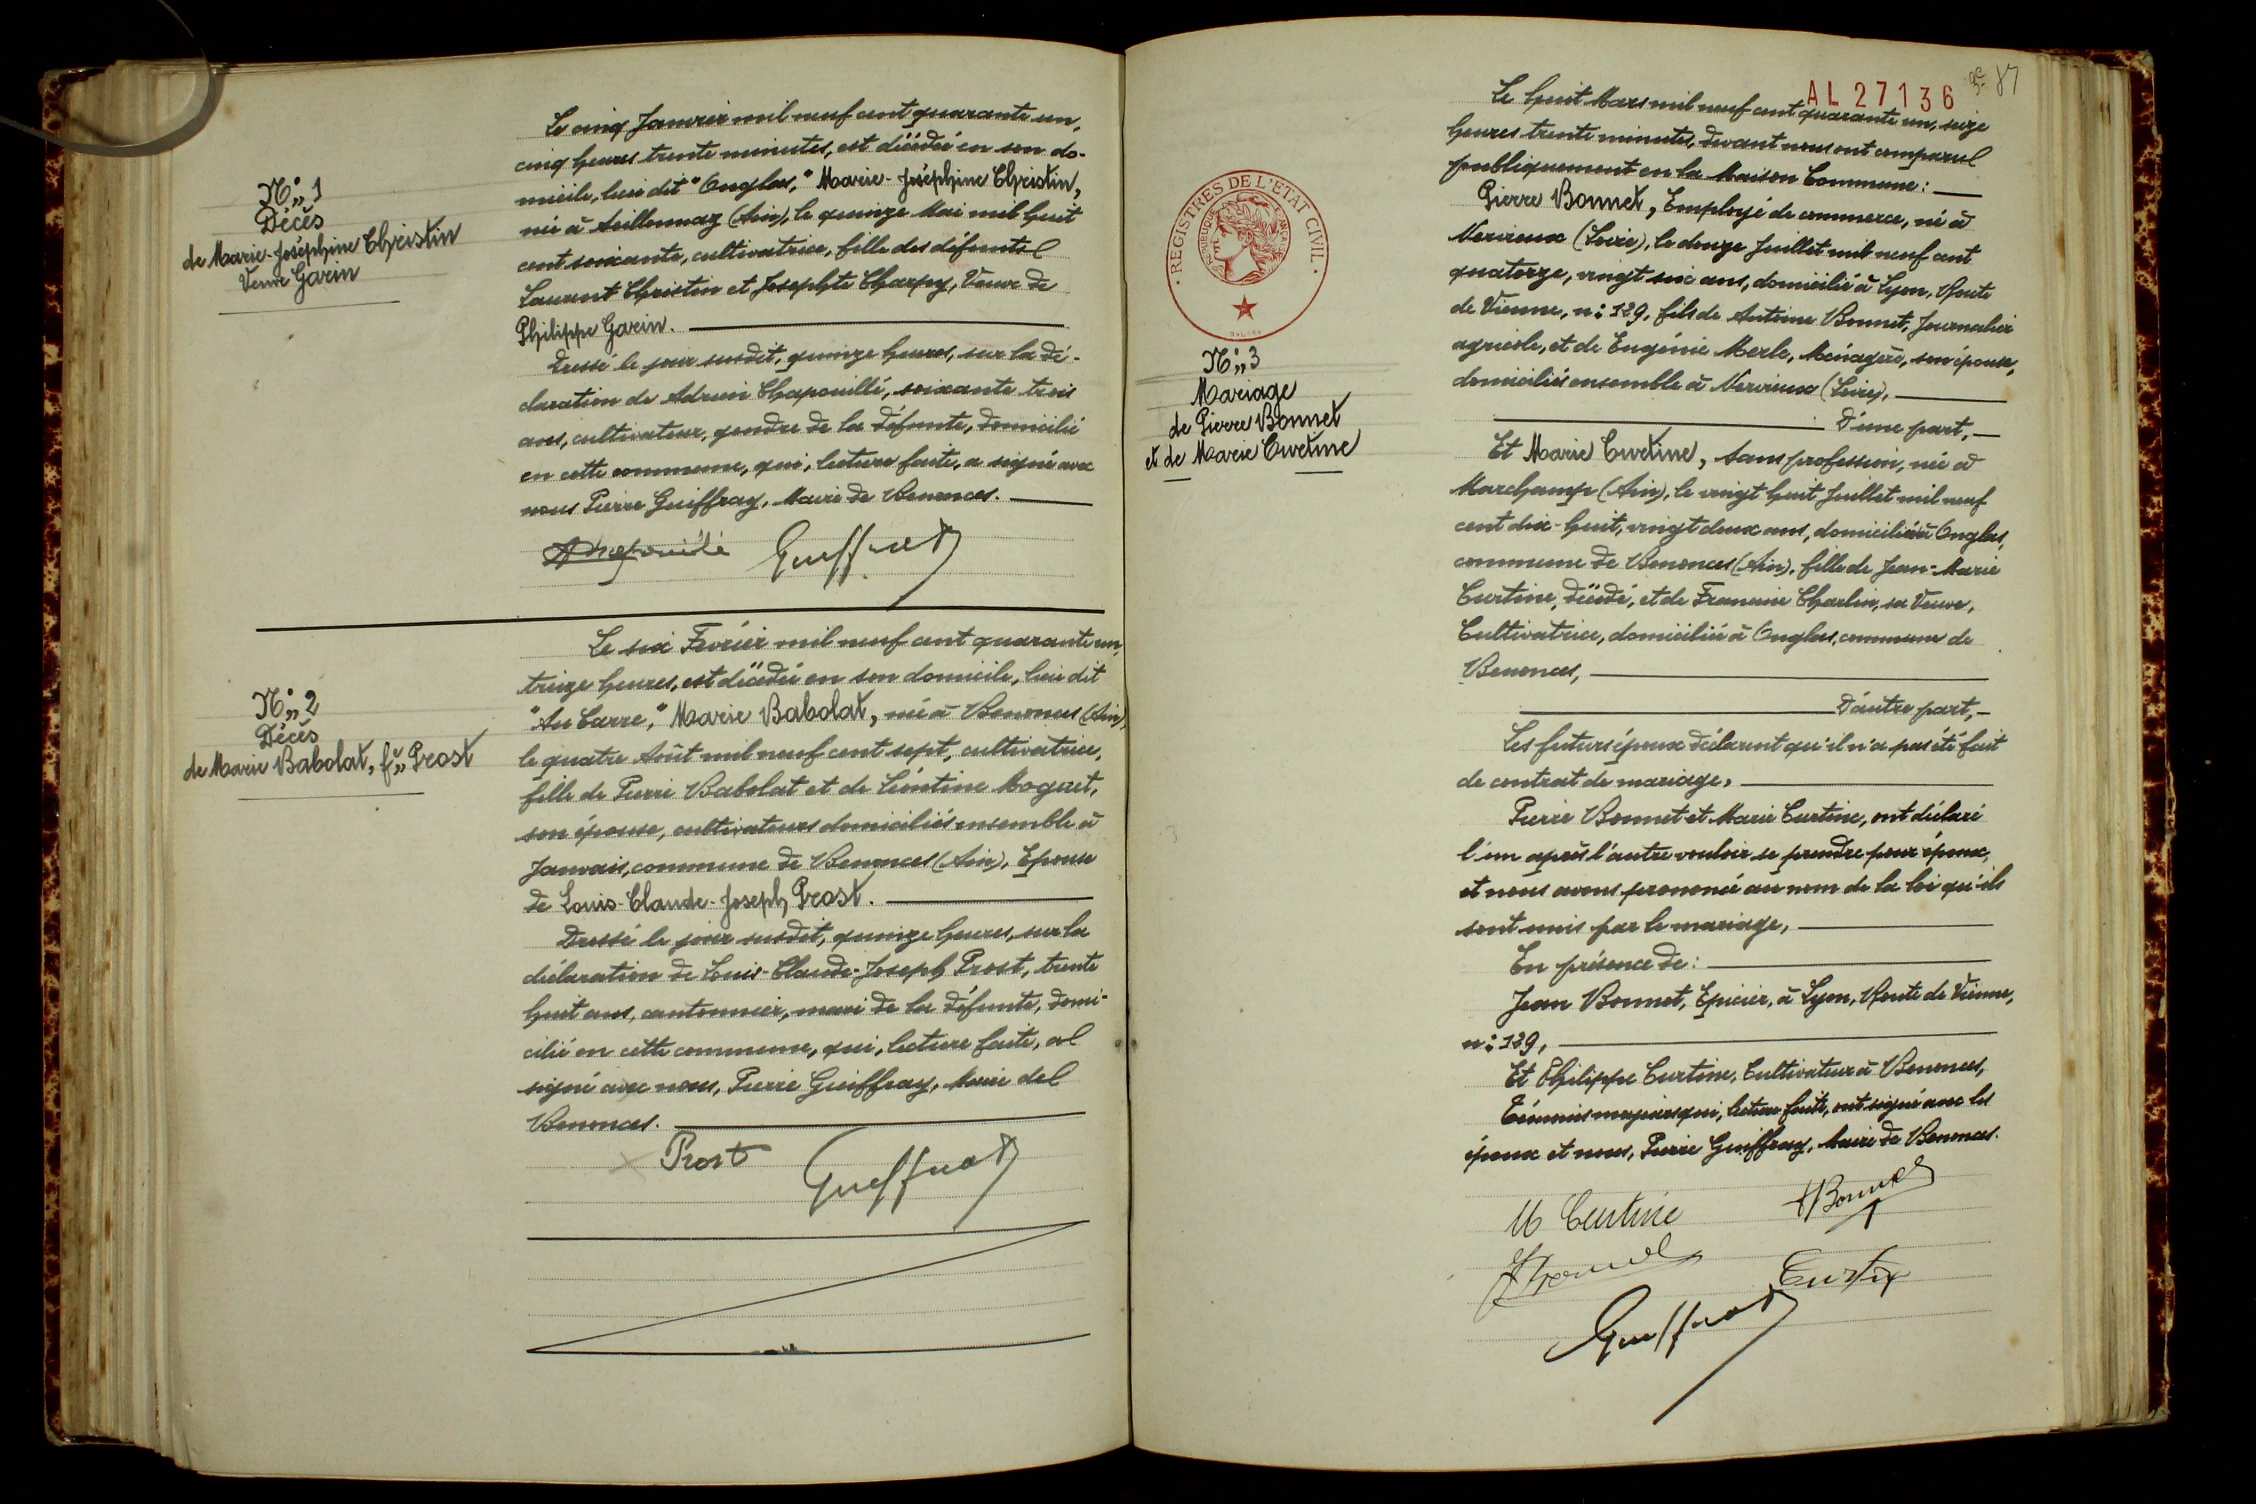 N° 1
Décès
de Marie-Joséphine Christin
Veuve Garin
Le cinq Janvier mil neuf cent quarante un,
cinq heures trente minutes, est décédée en son do-
micile, lieu dit "Onglas," Marie-Joséphine Christin,
née à Seillonnaz (Ain), le quinze Mai mil huit
cent soixante, cultivatrice, fille des défunts
Laurent Christin et Josephte Charpy, Veuve de
Philippe Garin.
Dressé le jour susdit, quinze heures, sur la dé-
claration de Adrien Chapouillé, soixante trois
ans, cultivateur, gendre de la défunte, domicilié
en cette commune, qui, lecture faite, a signé avec
nous Pierre Guiffray, Maire de Benonces.
N° 2
Décès
de Marie Babolat, fe Prost
Le six Février mil neuf cent quarante un,
treize heures, est décédée en son domicile, lieu dit
"Au Carre," Marie Babolat, née à Benonces (Ain),
le quatre Août mil neuf cent sept, cultivatrice,
fille de Pierre Babolat et de Léontine Moguet,
son épouse, cultivateurs domiciliés ensemble à
Janvais, commune de Benonces (Ain), Epouse
de Louis-Claude-Joseph Prost.
Dressé le jour susdit, quinze heures, sur la
déclaration de Louis-Claude-Joseph Prost, trente
huit ans, cantonnier, mari de la défunte, domi-
cilié en cette commune, qui, lecture faite, a
signé avec nous, Pierre Guiffray, Maire de
Benonces.
Prost
AL 27136
87
REGISTRES DE L'ETAT CIVIL
N° 3
Mariage
de Pierre Bonnet
et de Marie Curtine
Le huit Mars mil neuf cent quarante un, seize
heures trente minutes, devant nous ont comparu
publiquement en la Maison Commune :
Pierre Bonnet, Employé de commerce, né à
Nervieux (Loire), le douze Juillet mil neuf cent
quatorze, vingt six ans, domicilié à Lyon, Route
de Vienne, n° 129, fils de Antoine Bonnet, Journalier
agricole, et de Eugénie Merle, Ménagère, son épouse,
domiciliés ensemble à Nervieux (Loire),
D'une part,
Et Marie Curtine, sans profession, née à
Marchamp (Ain), le vingt huit Juillet mil neuf
cent dix-huit, vingt deux ans, domiciliée à Onglas,
commune de Benonces (Ain), fille de Jean-Marie
Curtine, décédé, et de Francine Charlin, sa Veuve,
Cultivatrice, domiciliée à Onglas, commune de
Benonces,
D'autre part,
Les futurs époux déclarent qu'il n'a pas été fait
de contrat de mariage,
Pierre Bonnet et Marie Curtine, ont déclaré
l'un après l'autre vouloir se prendre pour époux,
et nous avons prononcé au nom de la loi qu'ils
sont unis par le mariage,
En présence de :
Jean Bonnet, Epicier, à Lyon, Route de Vienne,
n° 129,
Et Philippe Curtine, Cultivateur à Benonces,
Témoins majeurs qui, lecture faite, ont signé avec les
époux et nous, Pierre Guiffray, Maire de Benonces.
M Curtine